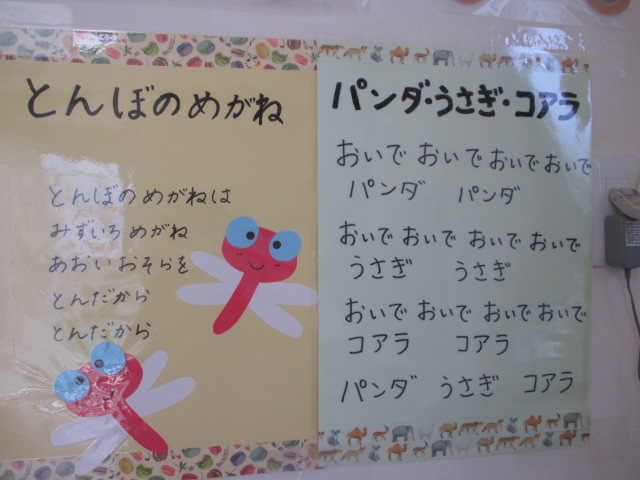 とんぼのめがね
とんぼのめがねは
みずいろめがね
あおいおそらを
とんだから
とんだから
パンダ・うさぎ・コアラ
おいで おいで おいで おいで
パンダ パンダ
おいで おいで おいで おいで
うさぎ うさぎ
おいで おいで おいで おいで
コアラ コアラ
パンダ うさぎ コアラ